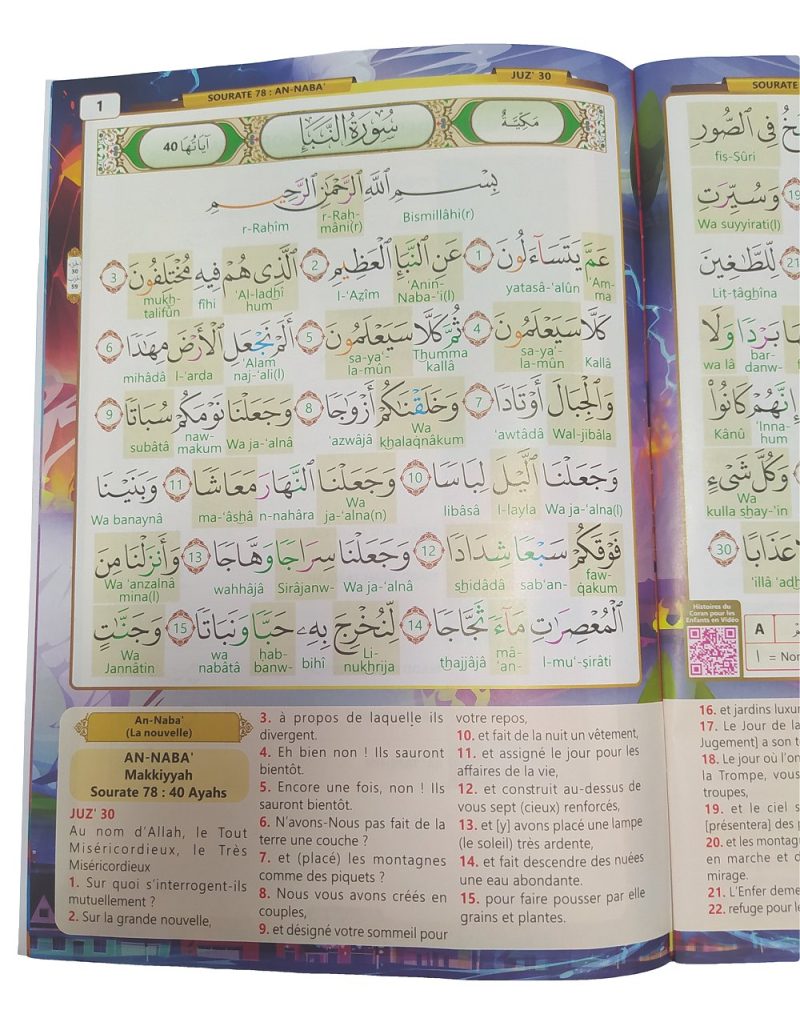 SOURATE 78 : AN-NABA'
JUZ' 30
1
مَكِيَّةٌ
سُورَةُ النَّبَإِ
آيَاتُهَا 40
بِسْمِ اللَّهِ الرَّحْمَٰنِ الرَّحِيمِ
Bismillâhi(r) r-Rah-mâni(r) r-Rahîm
عَمَّ يَتَسَآءَلُونَ 1 عَنِ النَّبَإِ الْعَظِيمِ 2 الَّذِى هُمْ فِيهِ مُخْتَلِفُونَ 3
'Am-ma yatasâ-'alûn 'Anin-Naba-'i(l) l-'Aẓîm 'Al-ladhî hum fîhi mukh-talifûn
كَلَّا سَيَعْلَمُونَ 4 ثُمَّ كَلَّا سَيَعْلَمُونَ 5 أَلَمْ نَجْعَلِ الْأَرْضَ مِهَٰدًا 6
Kallâ sa-ya'-la-mûn Thumma kallâ sa-ya'-la-mûn 'Alam naj-'ali(l) l-'arḍa mihâdâ
وَالْجِبَالَ أَوْتَادًا 7 وَخَلَقْنَٰكُمْ أَزْوَٰجًا 8 وَجَعَلْنَا نَوْمَكُمْ سُبَاتًا 9
Wal-jibâla 'awtâdâ Wa khalaqnâkum 'azwâjâ Wa ja-'alnâ naw-makum subâtâ
وَجَعَلْنَا الَّيْلَ لِبَاسًا 10 وَجَعَلْنَا النَّهَارَ مَعَاشًا 11 وَبَنَيْنَا
Wa ja-'alna(l) l-layla libâsâ Wa ja-'alna(n) n-nahâra ma-'âshâ Wa banaynâ
فَوْقَكُمْ سَبْعًا شِدَادًا 12 وَجَعَلْنَا سِرَاجًا وَهَّاجًا 13 وَأَنزَلْنَا مِنَ
faw-qakum sab'an- shidâdâ Wa ja-'alnâ Sirâjanw- wahhâjâ Wa 'anzalnâ mina(l)
الْمُعْصِرَٰتِ مَآءً ثَجَّاجًا 14 لِّنُخْرِجَ بِهِۦ حَبًّا وَنَبَاتًا 15 وَجَنَّٰتٍ
l-mu'-ṣirâti mâ-'an- thajjâjâ Li-nukhrija bihî ḥab-banw- wa nabâtâ Wa Jannâtin
An-Naba'
(La nouvelle)
AN-NABA'
Makkiyyah
Sourate 78 : 40 Ayahs
JUZ' 30
Au nom d'Allah, le Tout
Miséricordieux, le Très
Miséricordieux
1. Sur quoi s'interrogent-ils
mutuellement ?
2. Sur la grande nouvelle,
3. à propos de laquelle ils
divergent.
4. Eh bien non ! Ils sauront
bientôt.
5. Encore une fois, non ! Ils
sauront bientôt.
6. N'avons-Nous pas fait de la
terre une couche ?
7. et (placé) les montagnes
comme des piquets ?
8. Nous vous avons créés en
couples,
9. et désigné votre sommeil pour
votre repos,
10. et fait de la nuit un vêtement,
11. et assigné le jour pour les
affaires de la vie,
12. et construit au-dessus de
vous sept (cieux) renforcés,
13. et [y] avons placé une lampe
(le soleil) très ardente,
14. et fait descendre des nuées
une eau abondante.
15. pour faire pousser par elle
grains et plantes.
SOURATE
فِى الصُّورِ
fiṣ-Ṣûri
19 وَسُيِّرَتِ
Wa suyyirati(l)
21 لِّلطَّٰغِينَ
Liṭ-ṭâghîna
بَرْدًا وَلَا
bar-danw- wa lâ
إِنَّهُمْ كَانُوا۟
'Inna-hum Kânû
وَكُلَّ شَىْءٍ
Wa kulla shay-'in
عَذَابًا 30
'illâ
Histoires du
Coran pour les
Enfants en Vidéo
A
ا = Non
16. et jardins luxu
17. Le Jour de la
Jugement] a son t
18. Le jour où l'on
la Trompe, vous
troupes,
19. et le ciel s
[présentera] des p
20. et les montag
en marche et d
mirage.
21. L'Enfer deme
22. refuge pour le